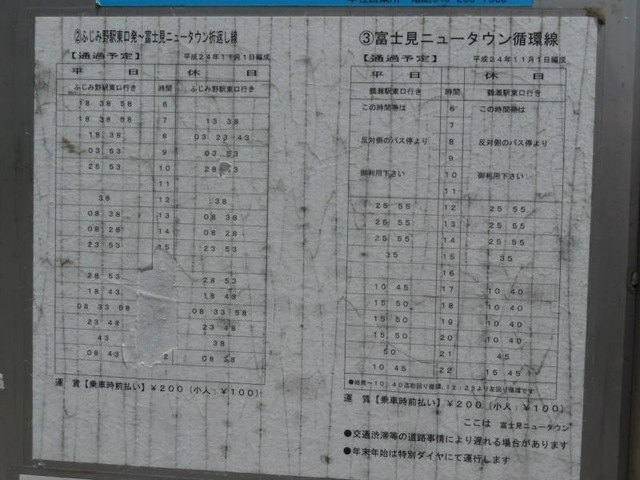 ②ふじみ野駅東口発～富士見ニュータウン折返し線
【通過予定】 平成24年11月1日編成
平 日 休 日
ふじみ野駅東口行き 時間 ふじみ野駅東口行き
18 38 58 6
7 13 38
18 38 8 03 23 43
03 53 9 03 53
28 53 10
11
38 12 38
08 38 13 08 38
08 28 14 08 28
23 53 23 53
28 53 28 53
18 43 18 43
08 33 58 08 33 58
23 48 23 48
43 38
08 43
運 賃【乗車時前払い】￥200(小人:￥100)
③富士見ニュータウン循環線
【通過予定】 平成24年11月1日編成
平 日 休 日
鶴瀬駅東口行き 時間 鶴瀬駅東口行き
この時間帯は 6 この時間帯は
7
反対側のバス停より 8 反対側のバス停より
9
御利用下さい 10 御利用下さい
11
25 55 12 25 55
25 55 13 25 55
25 55 14 25 55
35 15 35
16
10 45 17 10 40
15 50 18 10 40
15 50 19 10 40
15 50 20 10 40
50 21 45
10 45 22 15 45
運 賃【乗車時前払い】￥200(小人:￥100)
ここは 富士見ニュータウン
●交通渋滞等の道路事情により遅れる場合があります
●年末年始は特別ダイヤにて運行します